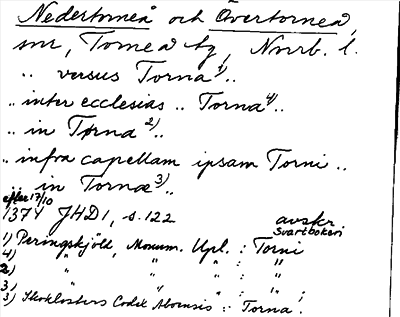 Nedertorneå och Övertorneå,
snr, Torneå tg, Norrb. l.
.. versus Torna 1) ..
.. inter ecclesias .. Torna 4) ..
.. in Torna 2) ..
.. infra capellam ipsam Torni ..
.. in Tornæ 3) ..
efter 17/10
1374 JHD 1, s. 122 avskr
Svartboken
1) Peringskjöld, Monum. Upl. : Torni
4) " " " : "
2) " " " : "
3) " " " : " ;
3) Skoklosters Codex Aboensis : Torna.